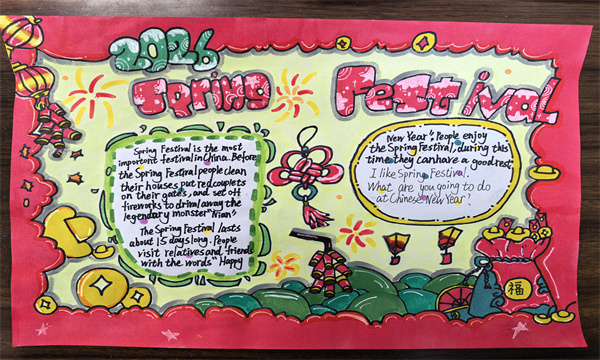 2026
Spring Festival
Spring Festival is the most
important festival in China. Before
the Spring Festival people clean
their houses put red couplets
on their gates, and set off
fireworks to drival away the
legendary monster "Nian"
The Spring Festival lasts
about 15 days long. People
visit relatives and friends
with the words "Happy
New Year". People enjoy
the Spring Festival, during this
time they can have a good rest
I like Spring Festival.
What are you going to do
at Chinese New Year?
福